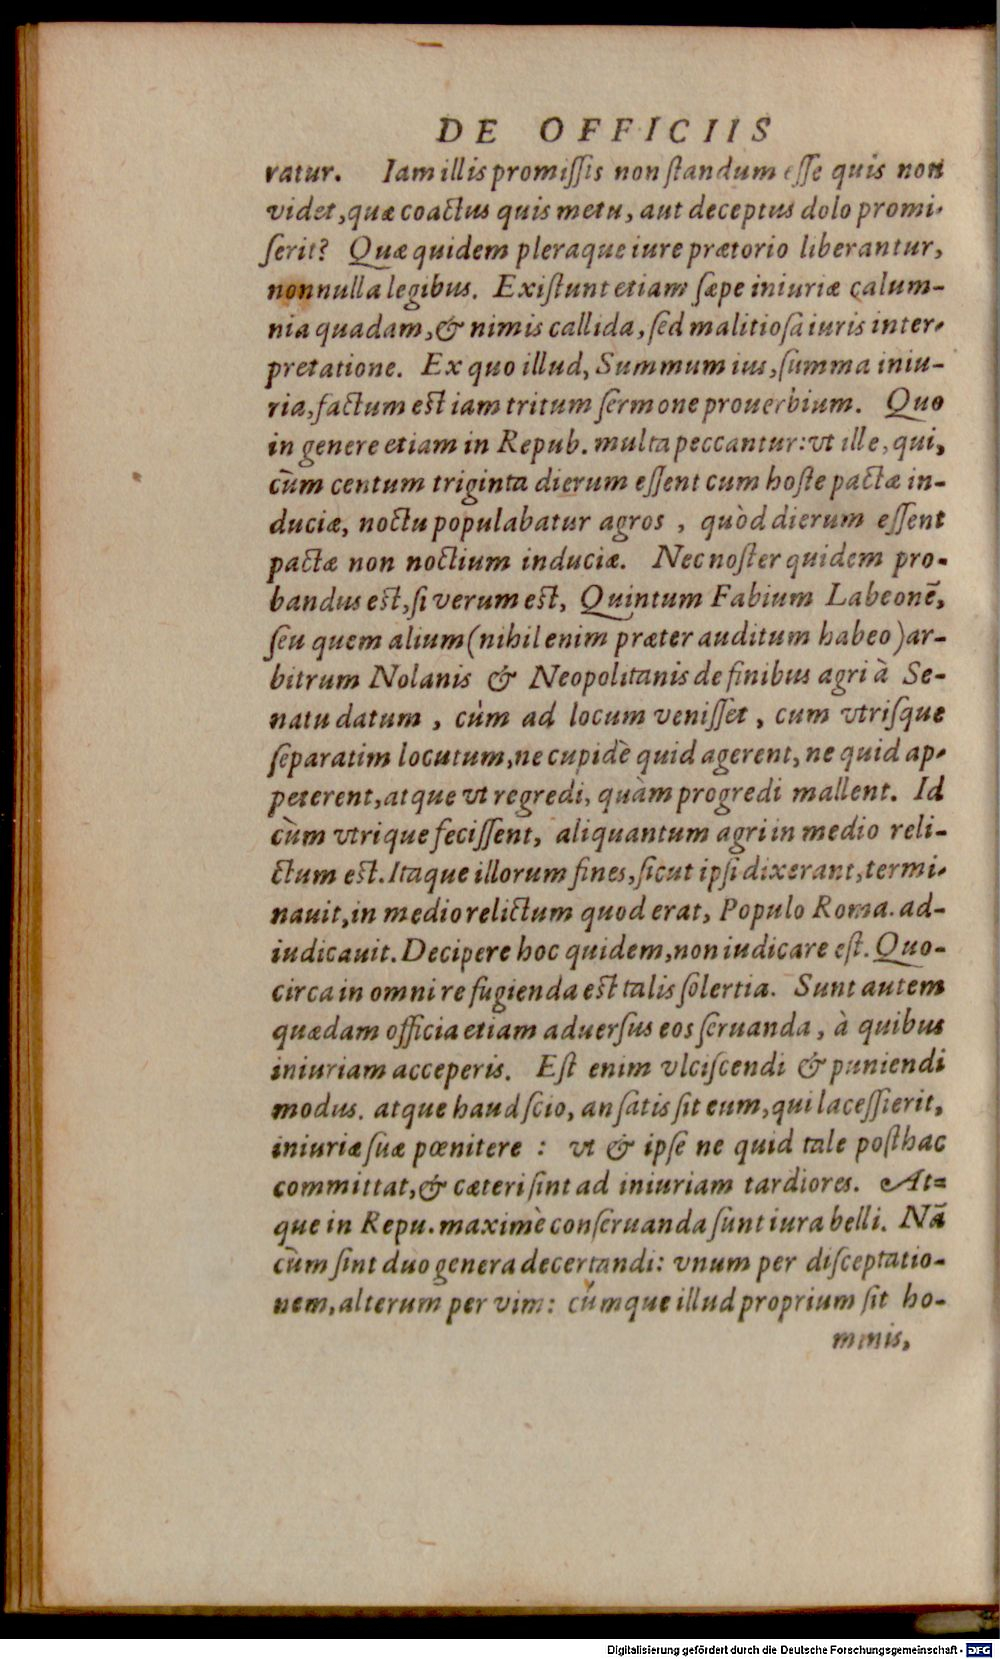 DE OFFICIIS
ratur. Iam illis promiſſis non ſtandum eſſe quis non
videt, quæ coactus quis metu, aut deceptus dolo promi-
ſerit? Quæ quidem pleraque iure prætorio liberantur,
nonnulla legibus. Exiſtunt etiam ſæpe iniuriæ calum-
nia quadam, & nimis callida, ſed malitioſa iuris inter-
pretatione. Ex quo illud, Summum ius, ſumma iniu-
ria, factum eſt iam tritum ſermone prouerbium. Quo
in genere etiam in Repub. multa peccantur: vt ille, qui,
cùm centum triginta dierum eſſent cum hoſte pactæ in-
duciæ, noctu populabatur agros , quòd dierum eſſent
pactæ non noctium induciæ. Nec noſter quidem pro-
bandus eſt, ſi verum eſt, Quintum Fabium Labeonē,
ſeu quem alium (nihil enim præter auditum habeo) ar-
bitrum Nolanis & Neopolitanis de finibus agri à Se-
natu datum , cùm ad locum veniſſet , cum vtriſque
ſeparatim locutum, ne cupidè quid agerent, ne quid ap-
peterent, atque vt regredi, quàm progredi mallent. Id
cùm vtrique feciſſent, aliquantum agri in medio reli-
ctum eſt. Itaque illorum fines, ſicut ipſi dixerant, termi-
nauit, in medio relictum quod erat, Populo Roma. ad-
iudicauit. Decipere hoc quidem, non iudicare eſt. Quo-
circa in omni re fugienda eſt talis ſolertia. Sunt autem
quædam officia etiam aduerſus eos ſeruanda, à quibus
iniuriam acceperis. Eſt enim vlciſcendi & puniendi
modus. atque haud ſcio, an ſatis ſit eum, qui laceſſierit,
iniuriæ ſuæ pœnitere : vt & ipſe ne quid tale poſthac
committat, & cæteri ſint ad iniuriam tardiores. At-
que in Repu. maximè conſeruanda ſunt iura belli. Nā
cùm ſint duo genera decertandi: vnum per diſceptatio-
nem, alterum per vim: cúmque illud proprium ſit ho-
minis,
Digitalisierung gefördert durch die Deutsche Forschungsgemeinschaft - DFG